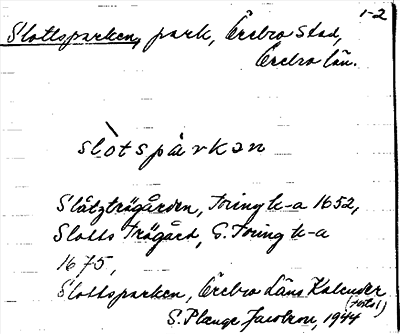 1-2
Slottsparken, park, Örebro stad,
Örebro län.
slòtspàrkən
Slåtzträgården, Toring k-a 1652,
Slotts Trägård, G. Toring k-a
1675,
Slottsparken, Örebro Läns Kalender
S. Plange Jacobson 1944